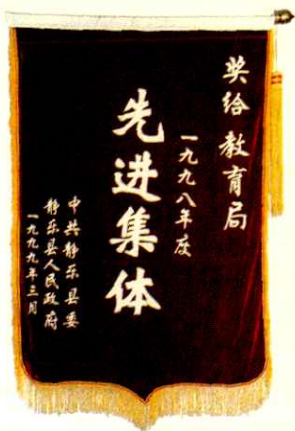 奖给 教育局
一九九八年度
先进集体
中共静乐县委
静乐县人民政府
一九九九年三月